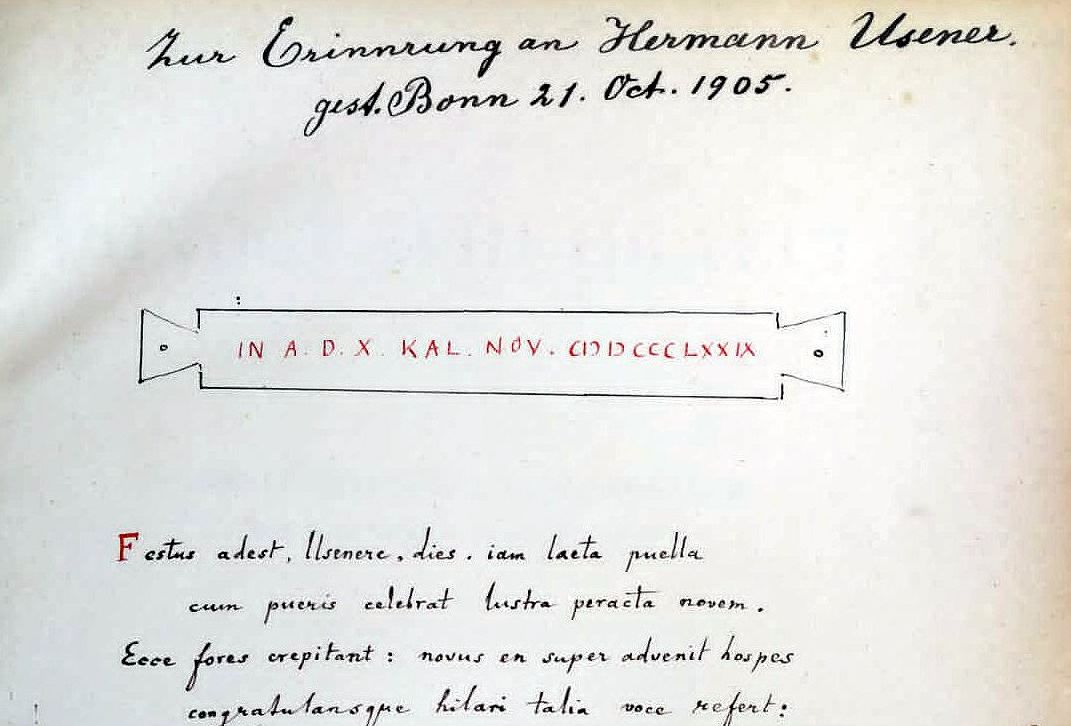 Zur Erinnrung an Hermann Usener.
gest. Bonn 21. Oct. 1905.
IN A. D. X. KAL. NOV. CIↃIↃCCCLXXIX
Festus adest, Usenere, dies. iam laeta puella
cum pueris celebrat lustra peracta novem.
Ecce fores crepitant: novus en super advenit hospes
congratulansque hilari talia voce refert: